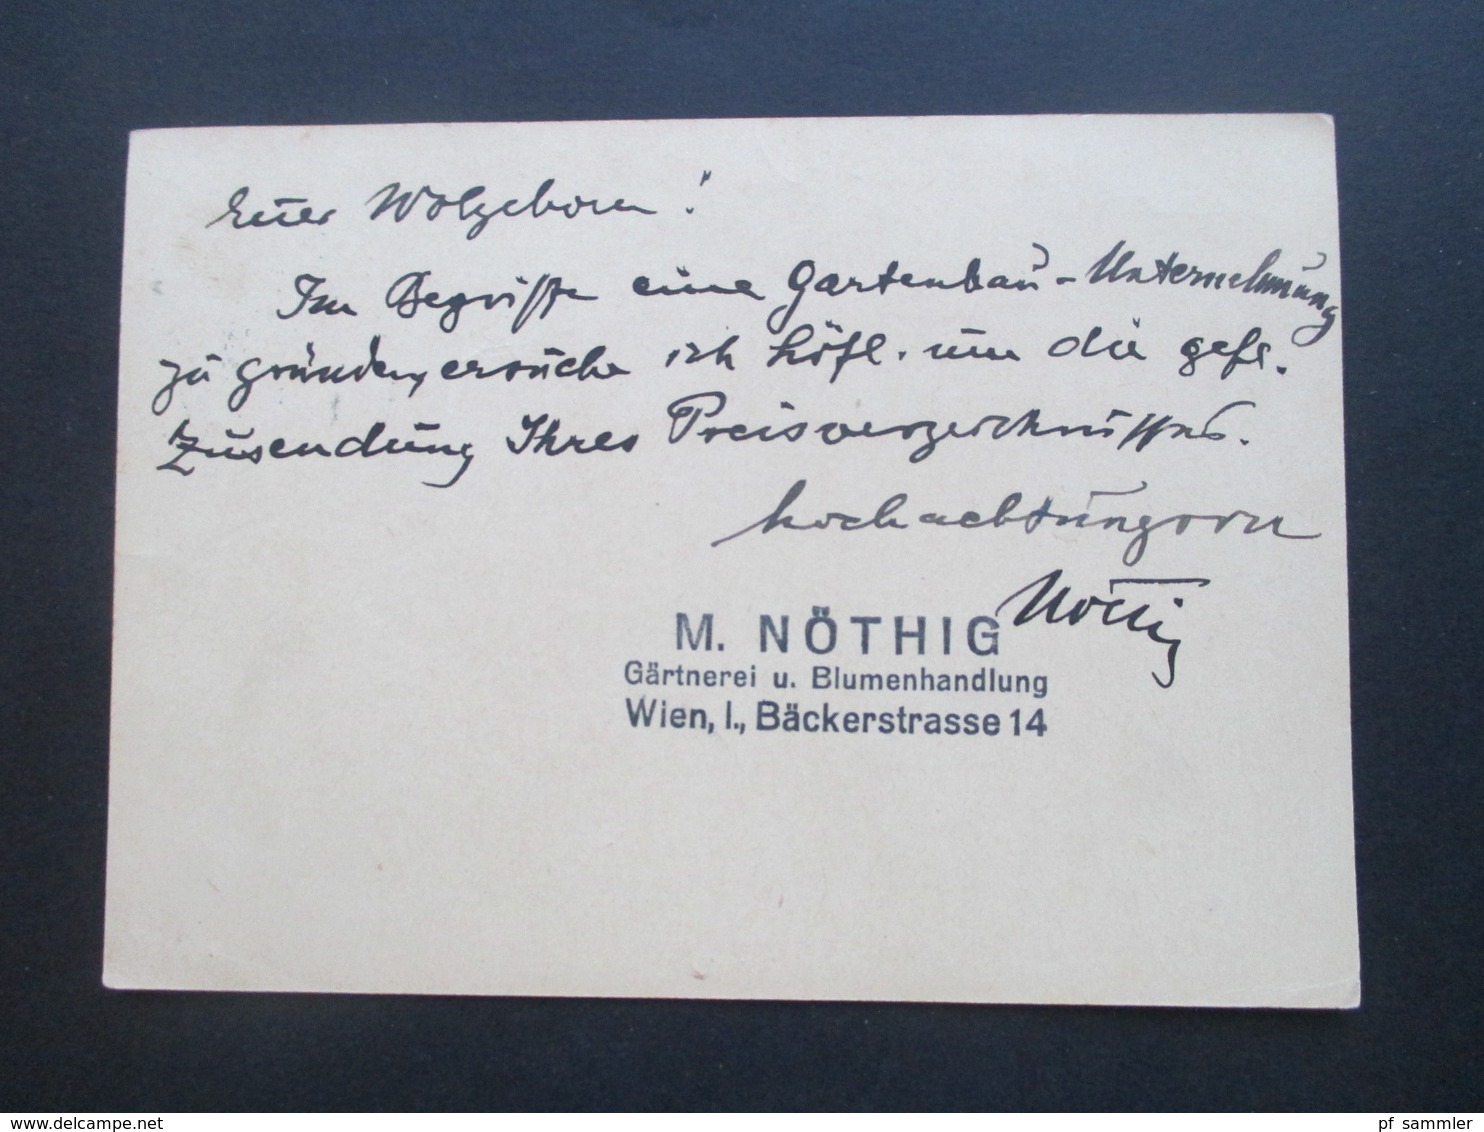 Euer Wolgeboren!
Im Begriffe eine Gartenbau-Unternehmung
zu gründen, ersuche ich höfl. um die gefl.
Zusendung Ihres Preisverzeichnisses.
hochachtungsvoll
Nöthig
M. NÖTHIG
Gärtnerei u. Blumenhandlung
Wien, I., Bäckerstrasse 14
www.delcampe.net
pf_sammler